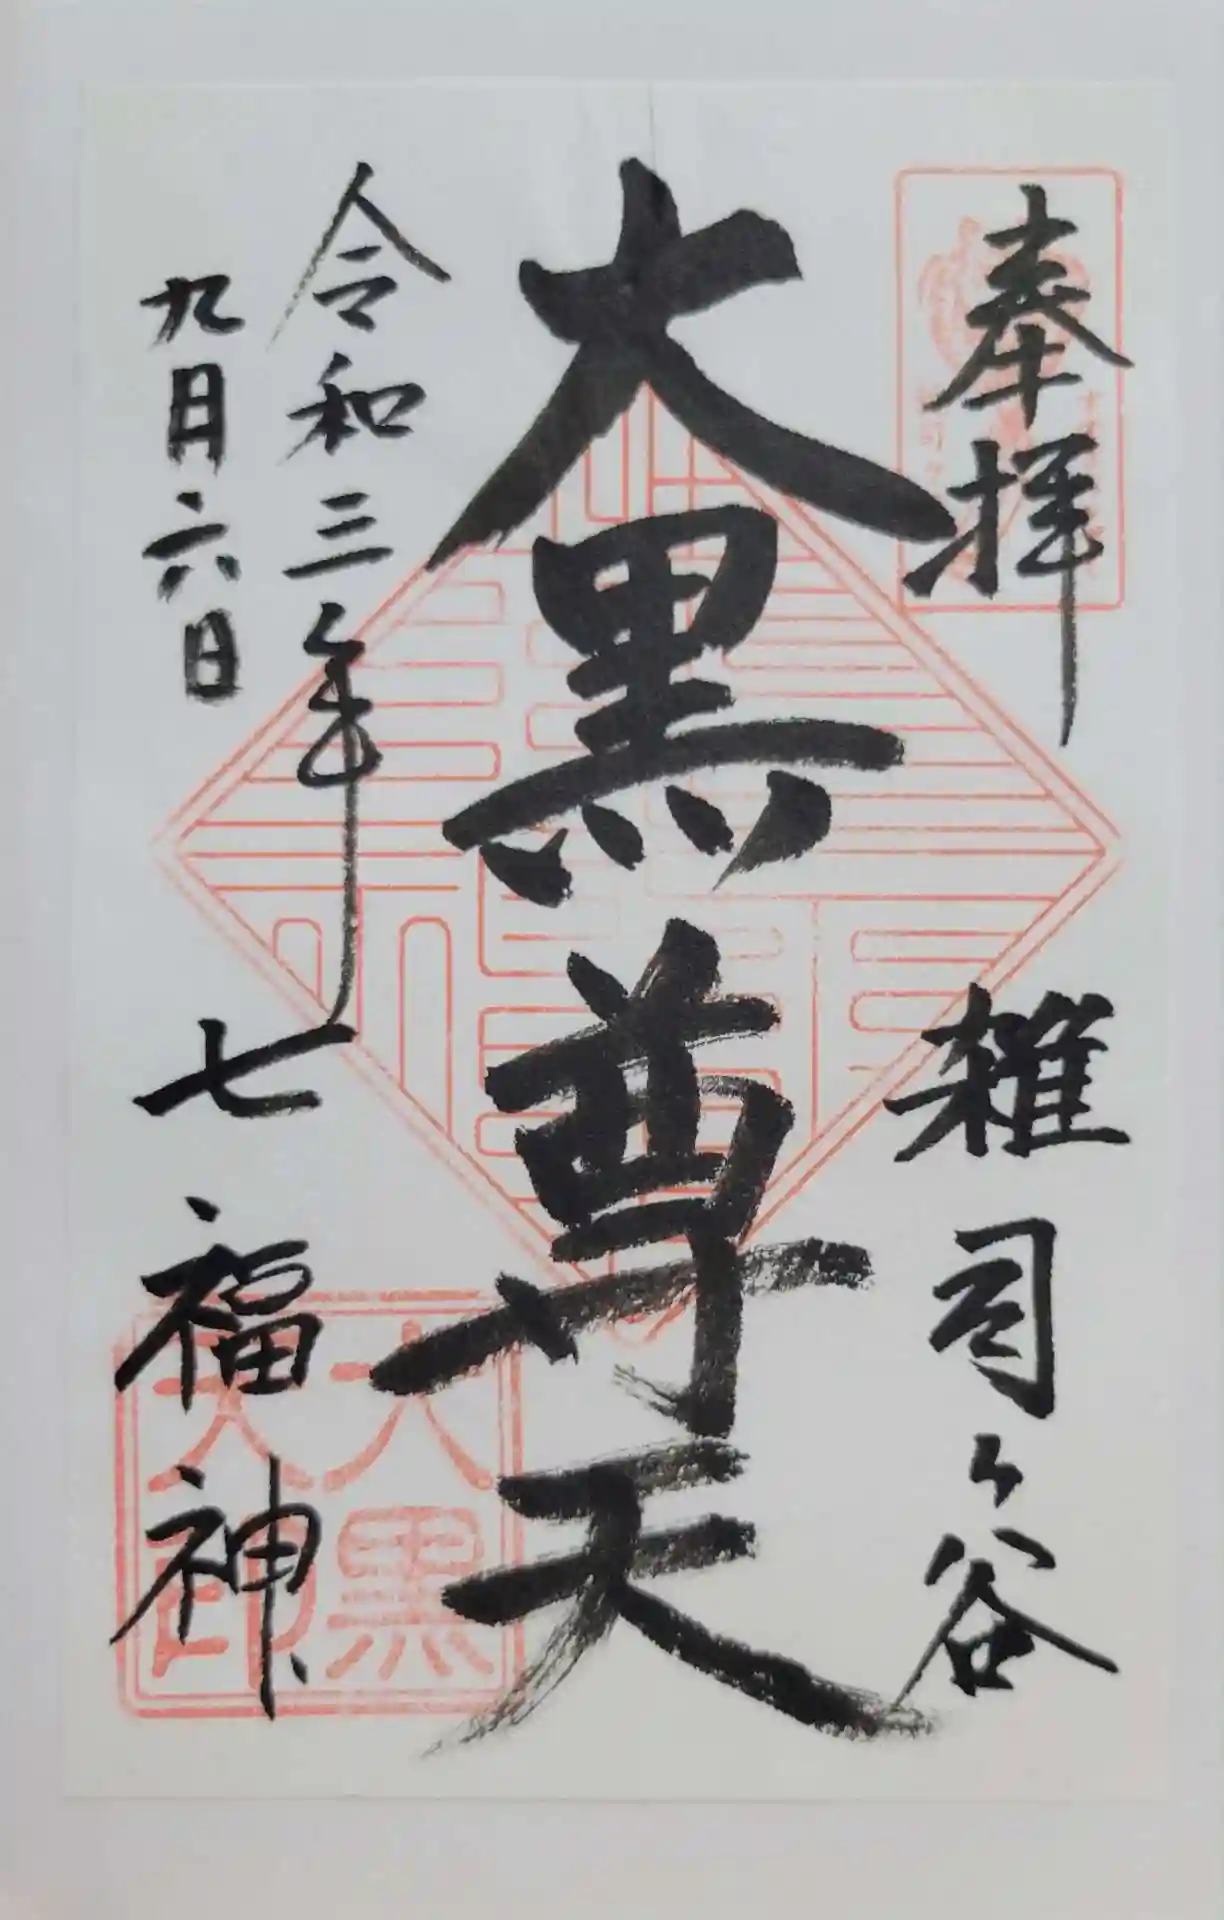 奉拝
雑司ヶ谷
大黒尊天
令和三年
九月六日
七福神
大黒
天印